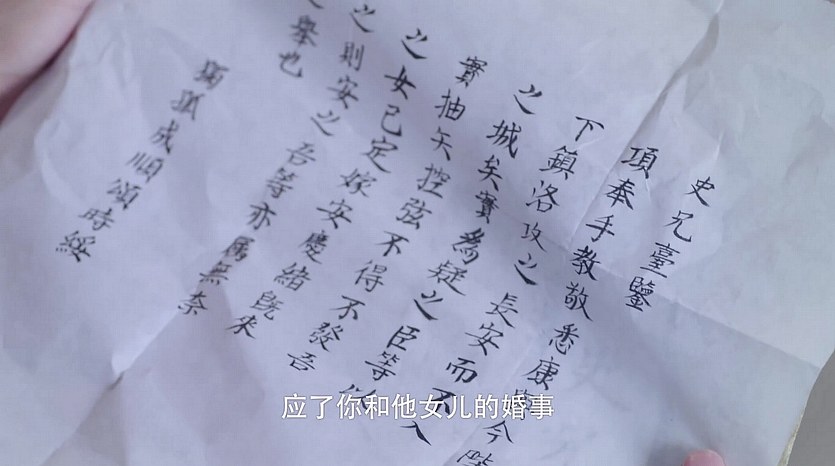 史兄臺鑒
項奉手教敬悉康今陛
下鎮洛攻之長安而不入
之城矣實為疑之臣等
實抽矢控弦不得不發吾
之女已定嫁安慶緒既來
之則安之吾等亦属無奈
舉也
獨孤成順頌時綏
应了你和他女儿的婚事